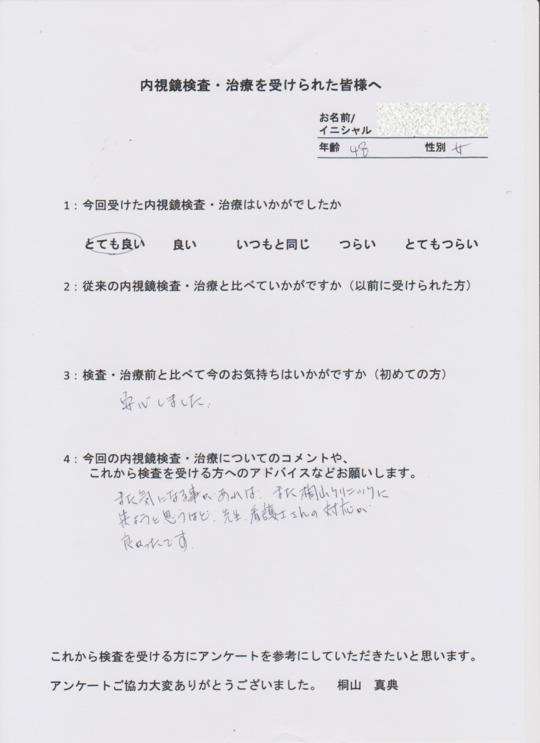 内視鏡検査・治療を受けられた皆様へ
お名前/
イニシャル
年齢 48 性別 女
1：今回受けた内視鏡検査・治療はいかがでしたか
とても良い 良い いつもと同じ つらい とてもつらい
2：従来の内視鏡検査・治療と比べていかがですか（以前に受けられた方）
3：検査・治療前と比べて今のお気持ちはいかがですか（初めての方）
安心しました。
4：今回の内視鏡検査・治療についてのコメントや、
これから検査を受ける方へのアドバイスなどお願いします。
また気になる事があれば、また桐山クリニックに
来ようと思うほど、先生、看護士さんの対応が
良かったです。
これから検査を受ける方にアンケートを参考にしていただきたいと思います。
アンケートご協力大変ありがとうございました。 桐山 真典